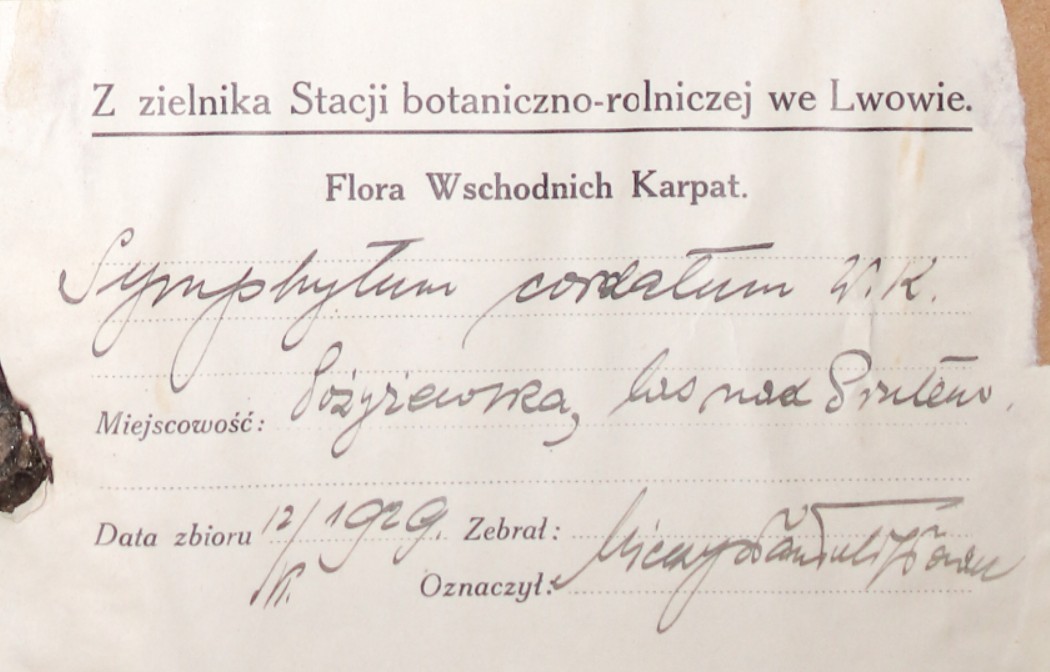 Z zielnika Stacji botaniczno-rolniczej we Lwowie.
Flora Wschodnich Karpat.
Symphytum cordatum W. K.
Miejscowość: Pożyżewska, las nad Prutem.
Data zbioru 12/V. 1929. Zebrał:
Oznaczył: